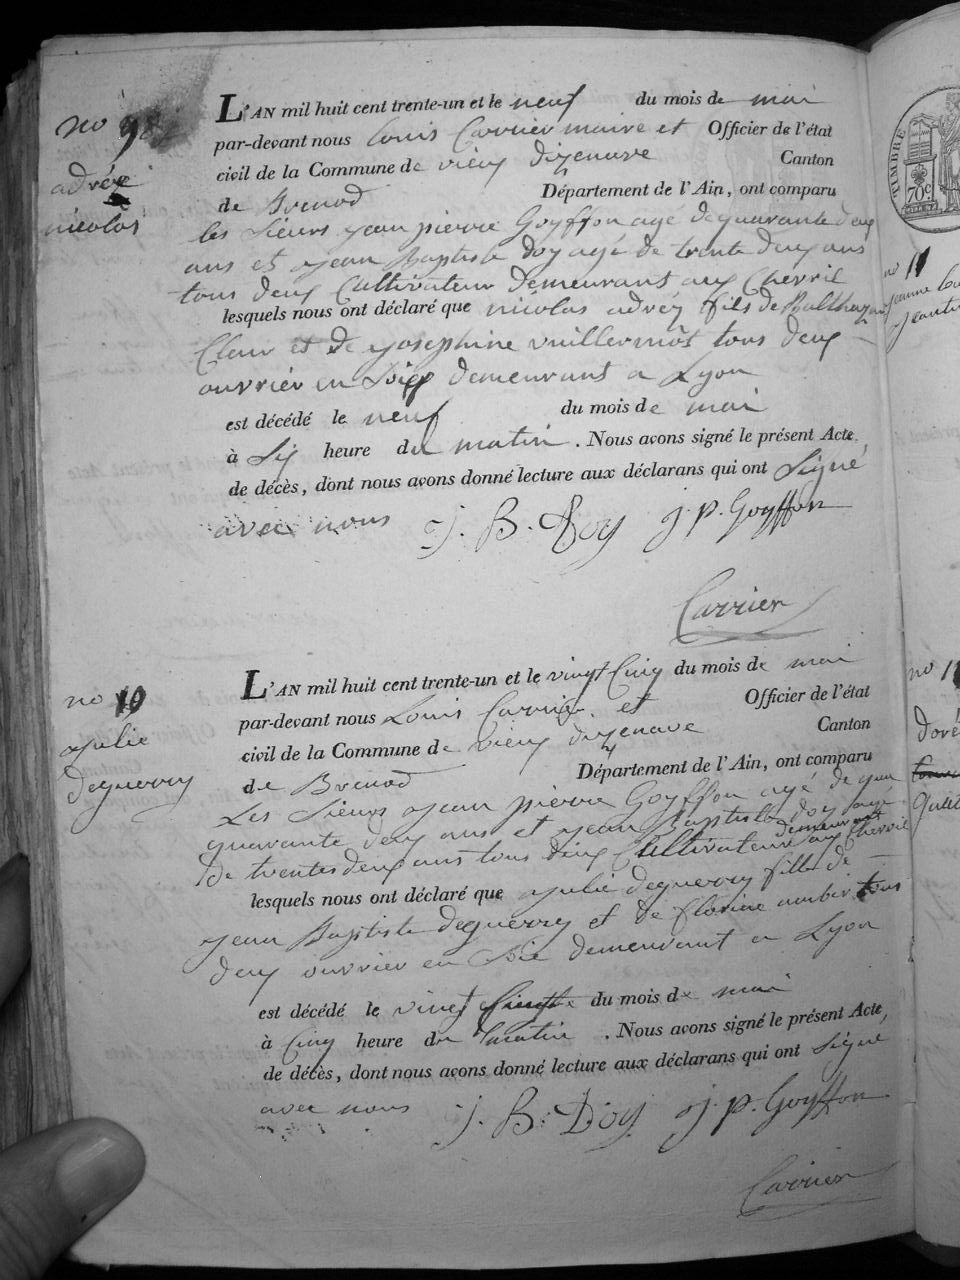 no 9
adréy
nicolas
L'AN mil huit cent trente-un et le neuf du mois de mai
par-devant nous Louis Carrier maire et Officier de l'état
civil de la Commune de vieux d'izenave Canton
de Brenod Département de l'Ain, ont comparu
les Sieurs jean pierre Goyffon agé de quarante deux
ans et jean Baptiste doy agé de trente deux ans
tous deux Cultivateur demeurant aux Chevril
lesquels nous ont déclaré que nicolas adréy fils de Balthazar
Claur et de josephine vuillermot tous deux
ouvrier en Soie demeurant a Lyon
est décédé le neuf du mois de mai
à Six heure du matin. Nous avons signé le présent Acte
de décès, dont nous avons donné lecture aux déclarans qui ont Signé
avec nous J. B. Doy J. P. Goyffon
Carrier
no 10
julie
deguerry
L'AN mil huit cent trente-un et le vingt Cinq du mois de mai
par-devant nous Louis Carrier et Officier de l'état
civil de la Commune de vieux d'izenave Canton
de Brenod Département de l'Ain, ont comparu
Les Sieurs jean pierre Goyffon agé de qua
quarante deux ans et jean Baptiste doy agé
De trentes deux ans tous deux Cultivateur demeurant aux Chevril
lesquels nous ont déclaré que julie deguerry fille de
jean Baptiste deguerry et de florine tous
deux ouvrier en Soie demeurant a Lyon
est décédé le vingt du mois de mai
à Cinq heure du matin. Nous avons signé le présent Acte,
de décès, dont nous avons donné lecture aux déclarans qui ont Signé
avec nous J. B. Doy J. P. Goyffon
Carrier
TIMBRE
70c
no 11
jeanne
no 1